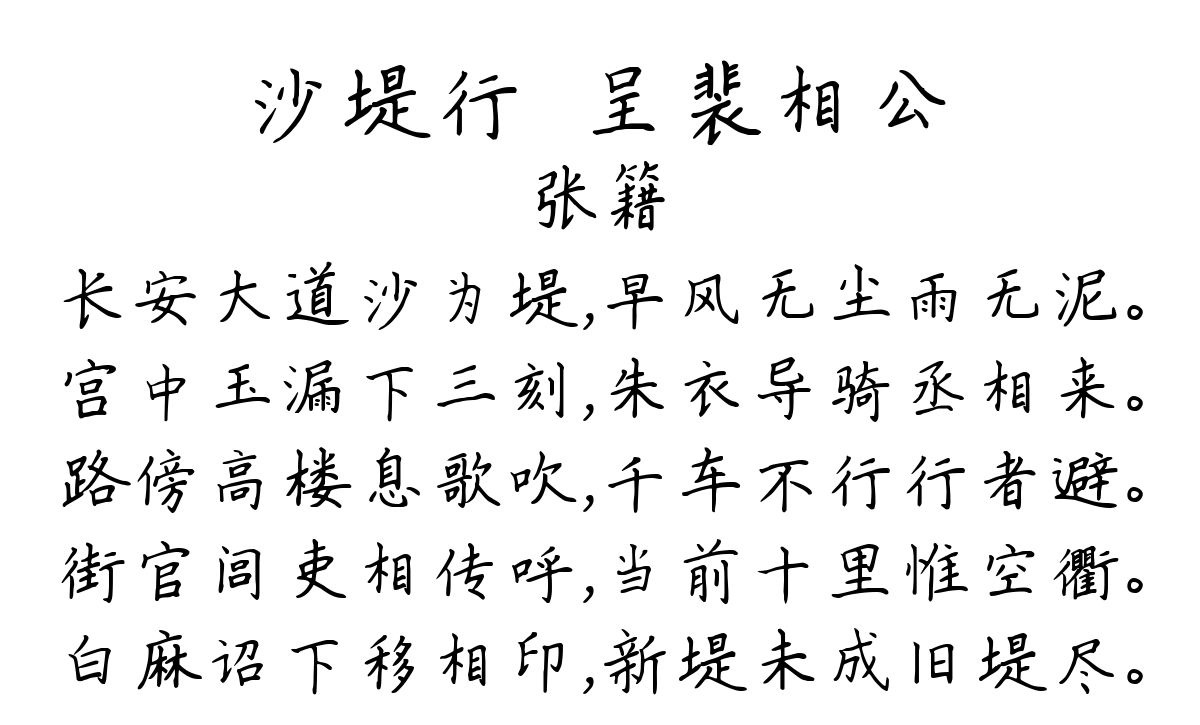 沙堤行 呈裴相公
张籍
长安大道沙为堤,早风无尘雨无泥。
宫中玉漏下三刻,朱衣导骑丞相来。
路傍高楼息歌吹,千车不行行者避。
街官闾吏相传呼,当前十里惟空衢。
白麻诏下移相印,新堤未成旧堤尽。